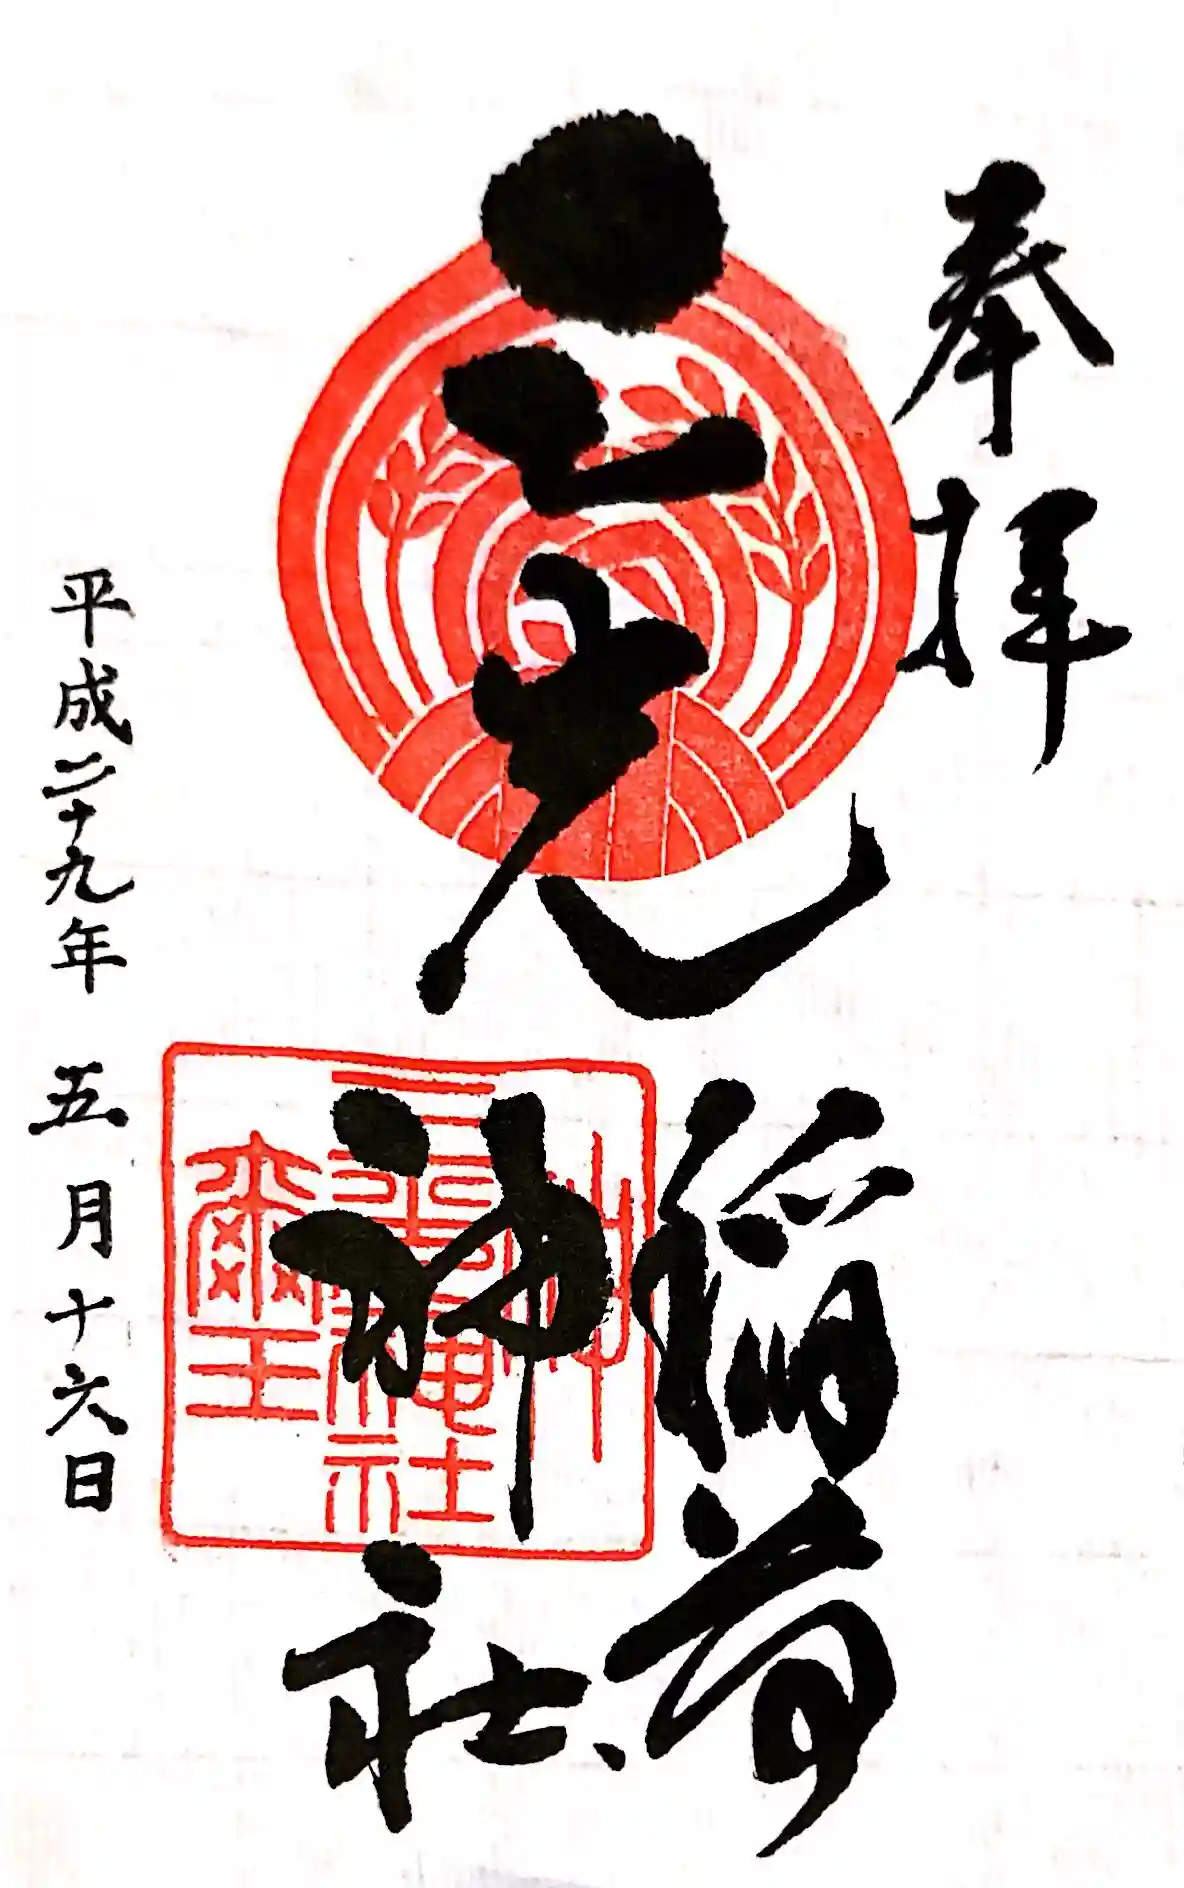 奉拝
三光
稲荷
神社
平成二十九年 五月十六日